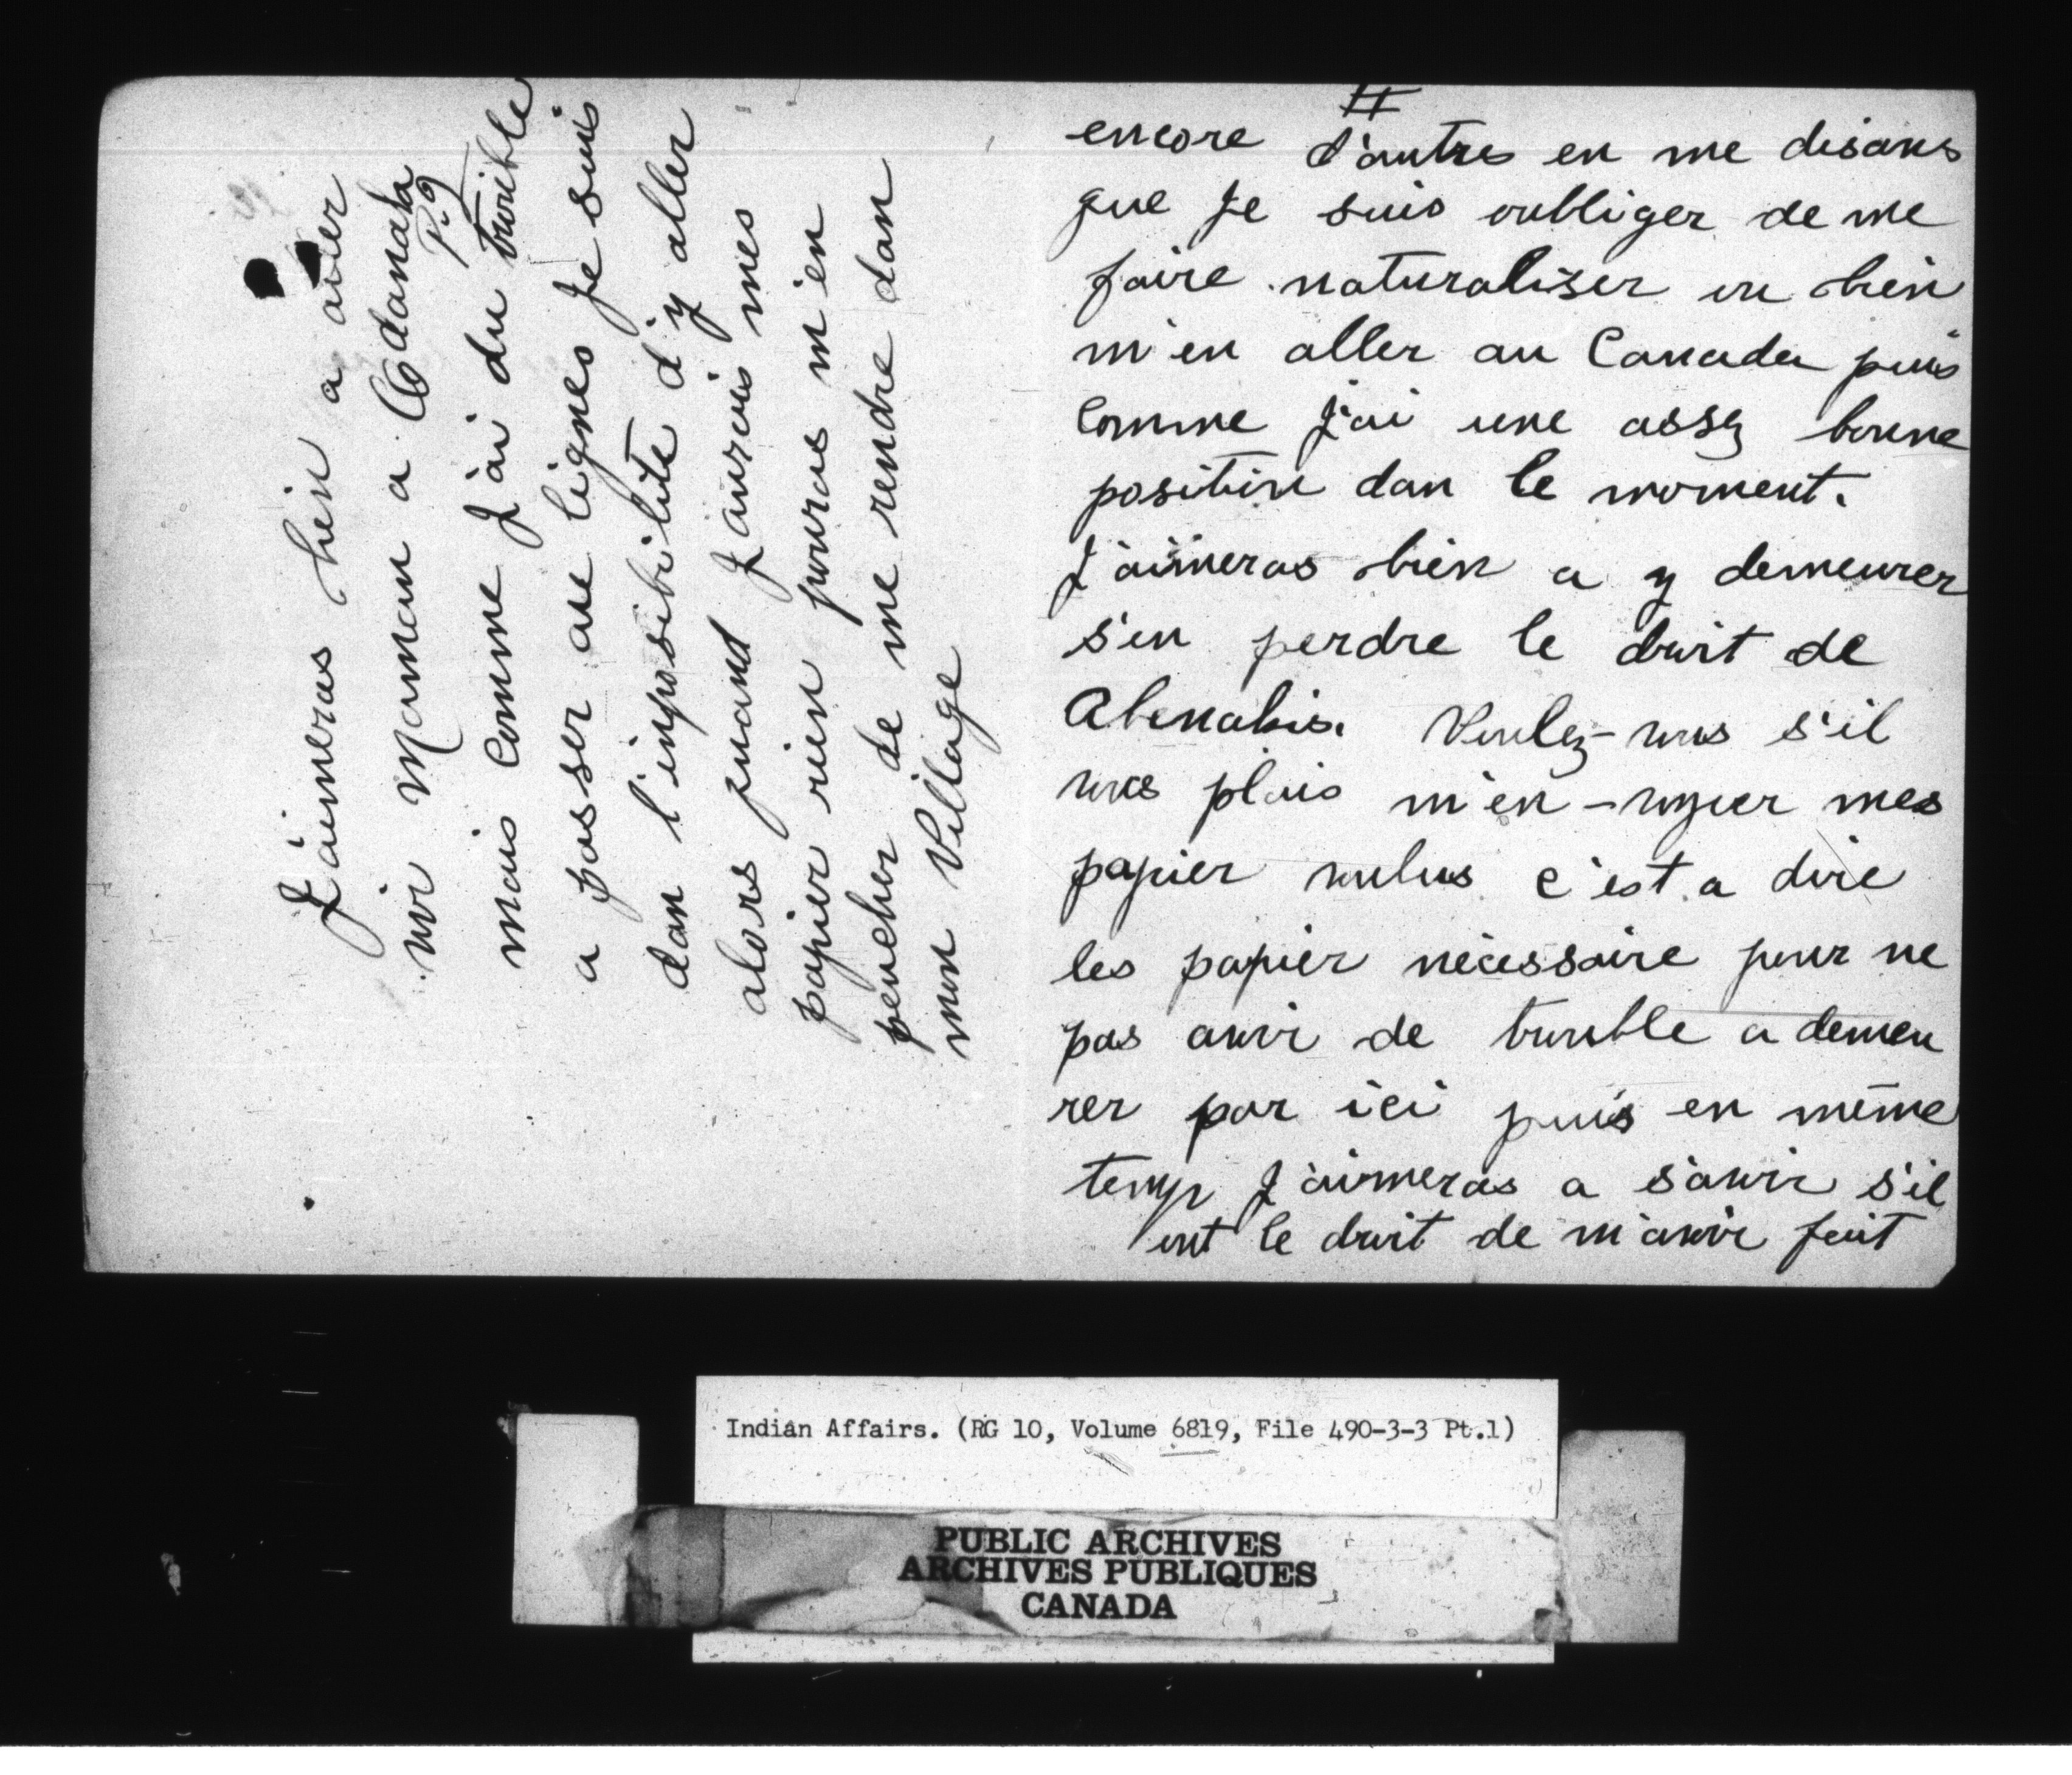 II
encore d'autres en me disans
que Je suis oubliger de me
faire naturaliser ou bien
m'en aller au Canada puis
Comme J'ai une assez bonne
position dan le moment.
J'aimeras bien a y demeurer
s'en perdre le droit de
Abenakis. Voulez-vous s'il
vous plais m'en-voyer mes
papier voulus c'est a dire
les papier nécessaire pour ne
pas avoir de trouble a demeu
rer par ici puis en même
temp J'aimeras a s'avoir s'il
ont le droit de m'avoir fait
J'aimeras bien a aller
voir Maman a Odanak
P.Q
mais Comme J'ai du trouble
a passer aue lignes Je suis
dan l'imposibilité d'y aller
alors quand J'aurais mes
papier rien pouras m'en
pencher de me rendre dan
mon Village
Indian Affairs. (RG 10, Volume 6819, File 490-3-3 Pt.1)
PUBLIC ARCHIVES
ARCHIVES PUBLIQUES
CANADA